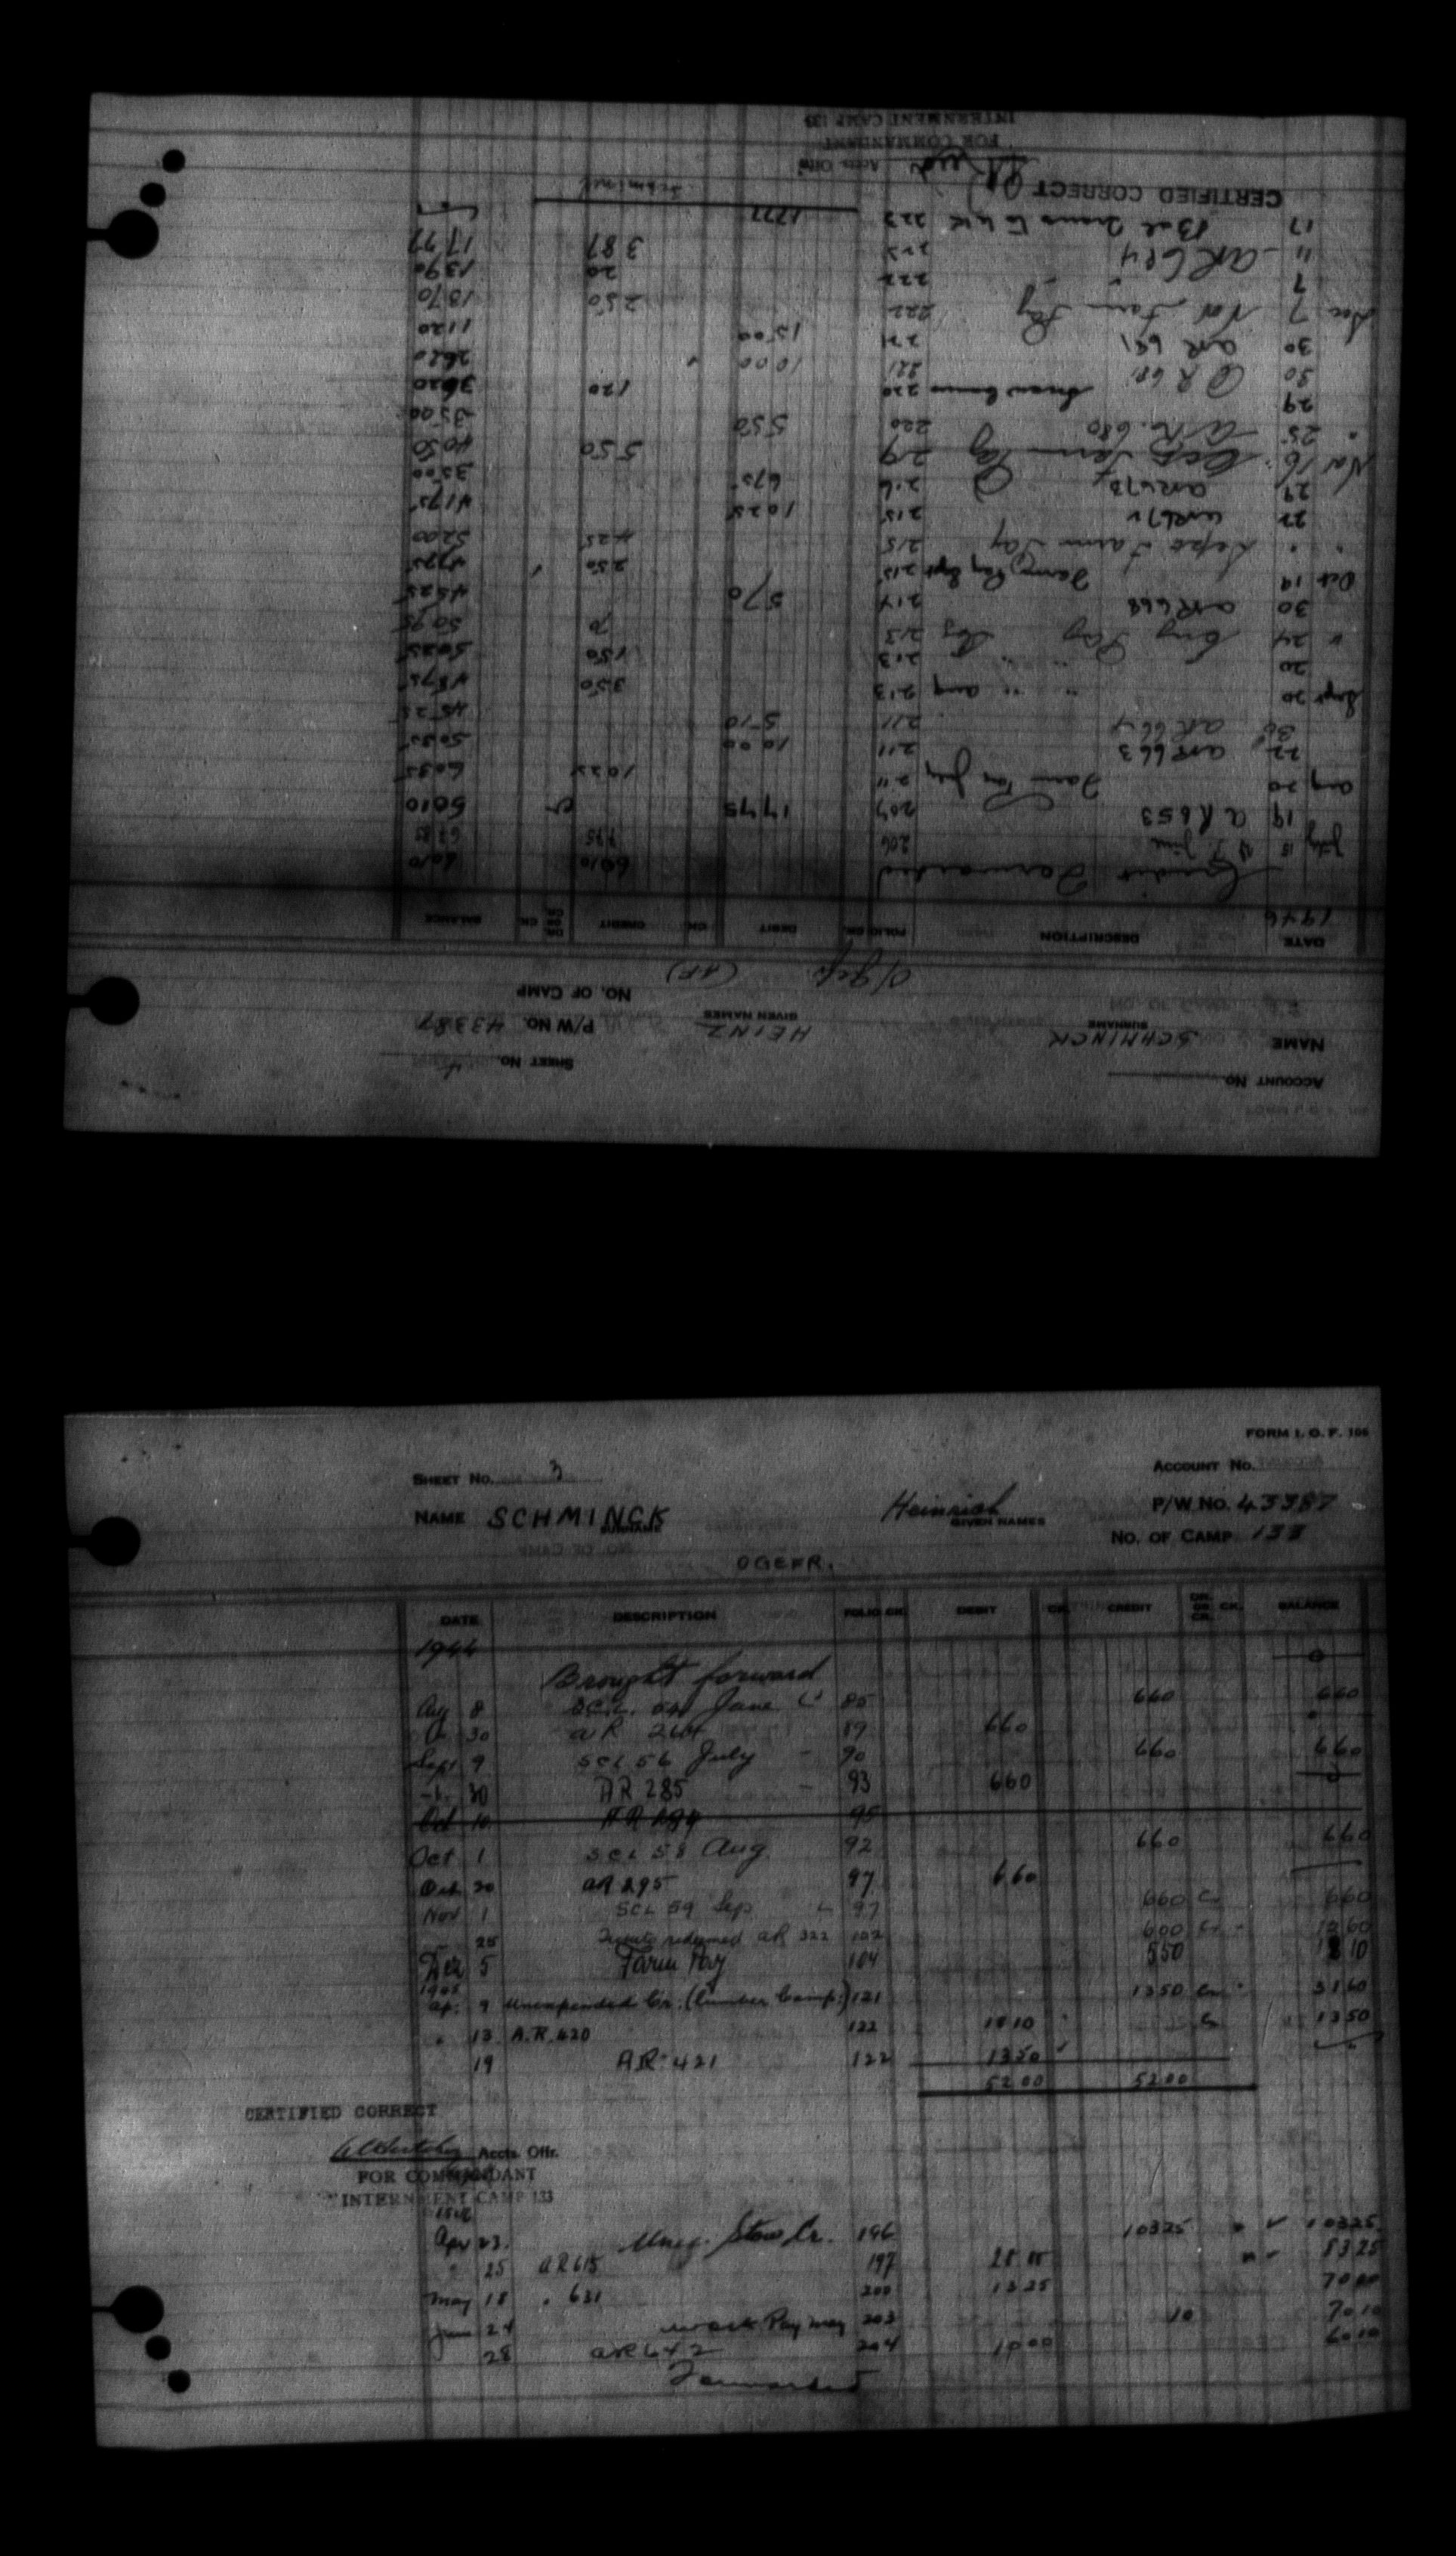 FORM I. O. F. 106
SHEET No. 3 ACCOUNT No.
NAME SCHMINCK Heinrich P/W No. 43387
SURNAME GIVEN NAMES
No. OF CAMP 133
OGEFR.
DATE DESCRIPTION FOLIO CK. DEBIT CK. CREDIT DR. OR CR. CK. BALANCE
1944
Brought forward 0
Aug 8 SCL 54 June 85 660 660
30 AR 264 89 660
Sept 9 SCL 56 July 90 660 660
30 AR 285 93 660 0
Oct 10 95
Oct 1 SCL 58 Aug 92 660 660
Oct 20 AR 295 97 660
Nov 1 SCL 59 Sep 97 660 Cr 660
25 redeemed AR 322 102 600 Cr 1260
Dec 5 Farm Pay 104 550 1810
1945
Ap. 9 Unexpended Cr. (Lumber Camp.) 121 1350 Cr 3160
" 13 A.R. 420 122 1810 Cr 1350
19 AR 421 122 1350
5200 5200
CERTIFIED CORRECT
Accts. Offr.
FOR COMMANDANT
INTERNMENT CAMP 133
1946
Apr 23. Store Cr. 196 10325 10325
" 25 AR 615 197 8325
May 18 " 631 200 1325 7000
June 24 Work Pay May 203 10 7010
28 AR 642 204 1000 6010
Forwarded
ACCOUNT No. SHEET No. 4
NAME SCHMINCK HEINZ P/W No. 43387
SURNAME GIVEN NAMES
No. OF CAMP
O/Gefr.
DATE DESCRIPTION FOLIO CK. DEBIT CK. CREDIT DR. OR CR. CK. BALANCE
1946
Credit Forwarded 6010 6010
July 15 June 206 775 6785
19 AR 653 207 1775 Cr 5010
Aug 20 Farm Pay July 211 1025 6035
22 AR 663 211 1000 5035
30 AR 664 211 510 4525
Sept 20 " " Aug 213 350 4875
20 " " 213 150 5025
" 24 Pay Aug 213 70 5095
30 AR 668 214 570 4525
Oct 19 Farm Pay Sept 215 250 4775
" " Sept Farm Pay 215 425 5200
22 AR 672 215 1025 4175
29 AR 673 216 675 3500
Nov 16 Oct Farm Pay 219 550 4050
" 25 AR 680 220 550 3500
29 220 120 3620
30 AR 681 221 1000 2620
30 AR 691 221 1500 1120
Dec 7 Nov Farm Pay 222 250 1370
7 " " 222 20 1390
11 AR 694 223 387 1777
17 Bal 223 1777
CERTIFIED CORRECT
Accts. Offr.
FOR COMMANDANT
INTERNMENT CAMP 133